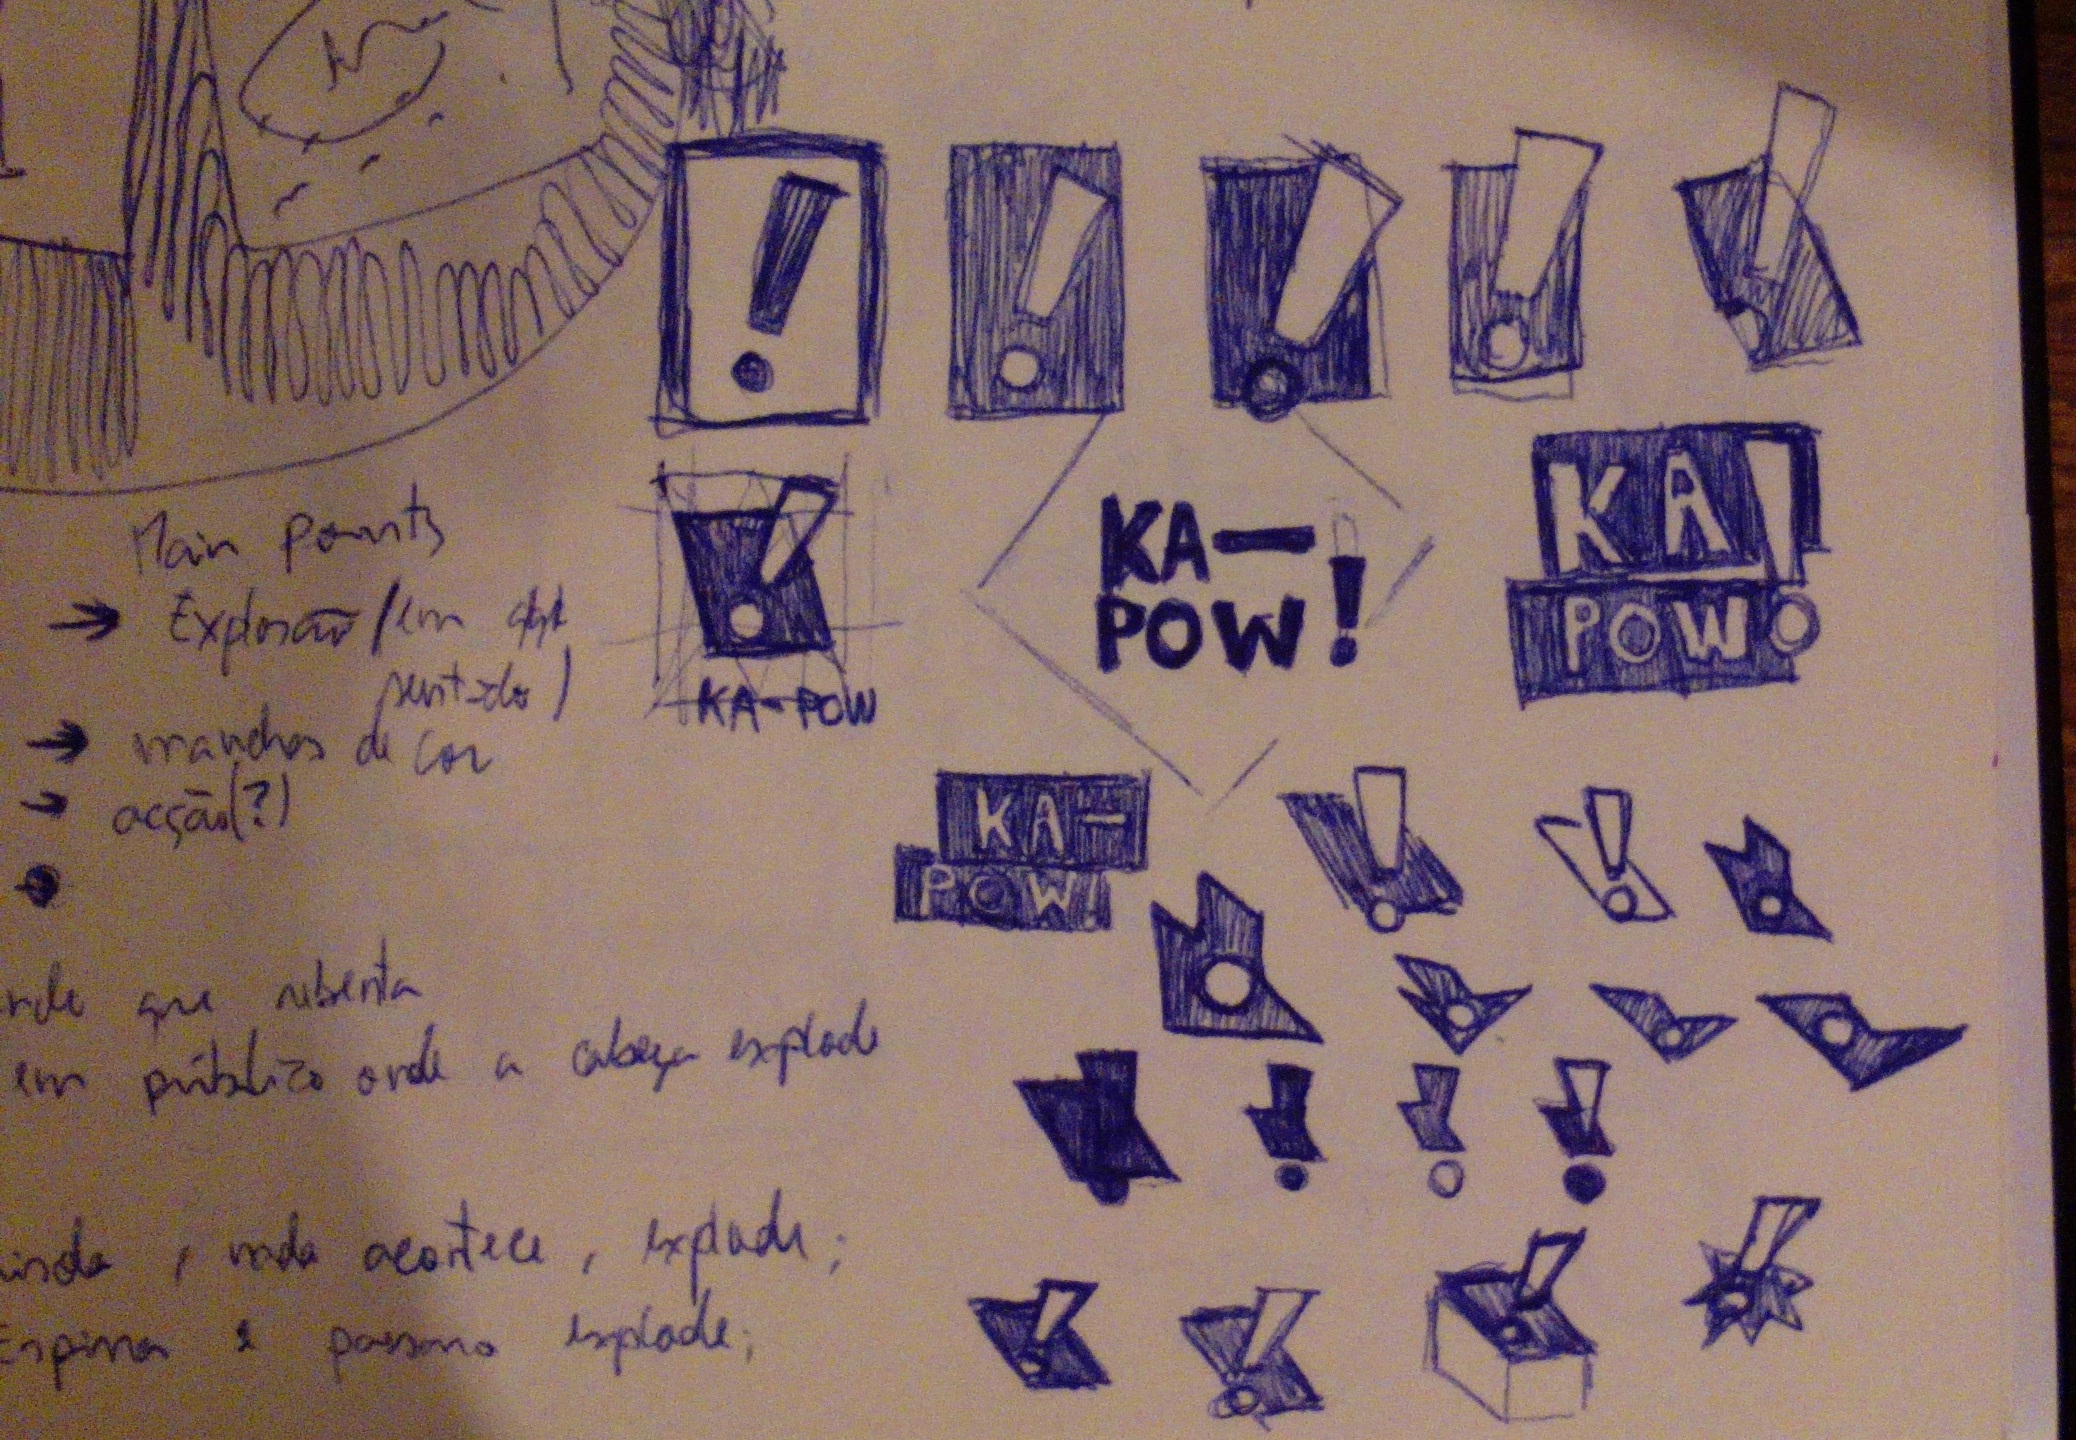 Main points
→ Explosão / em
sentido /
KA-POW
→ manchas de cor
→ acção(?)
que rebenta
em público onde a cabeça explode
, nada acontece, explode;
Espirra e passaro explode;
!
!
!
!
!
!
KA—
POW!
KA!
POW
KA—
POW!
!
!
!
!
!
!
!
!
!
!